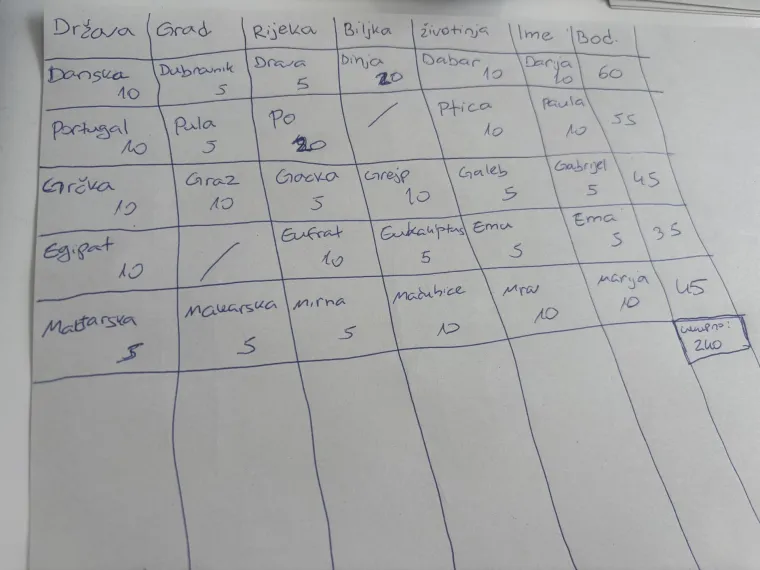 Država Grad Rijeka Biljka životinja Ime Bod.
Danska Dubrovnik Drava Dinja Dabar Darija
10 5 5 20 10 10 60
Portugal Pula Po / Ptica Paula
10 5 20 10 10 55
Grčka Graz Gacka Grejp Galeb Gabrijel
10 10 5 10 5 5 45
Egipat / Eufrat Eukaliptus Emu Ema
10 10 5 5 5 35
Mađarska Makarska Mirna Mahubice Mrav Marija
5 5 5 10 10 10 45
ukupno:
240